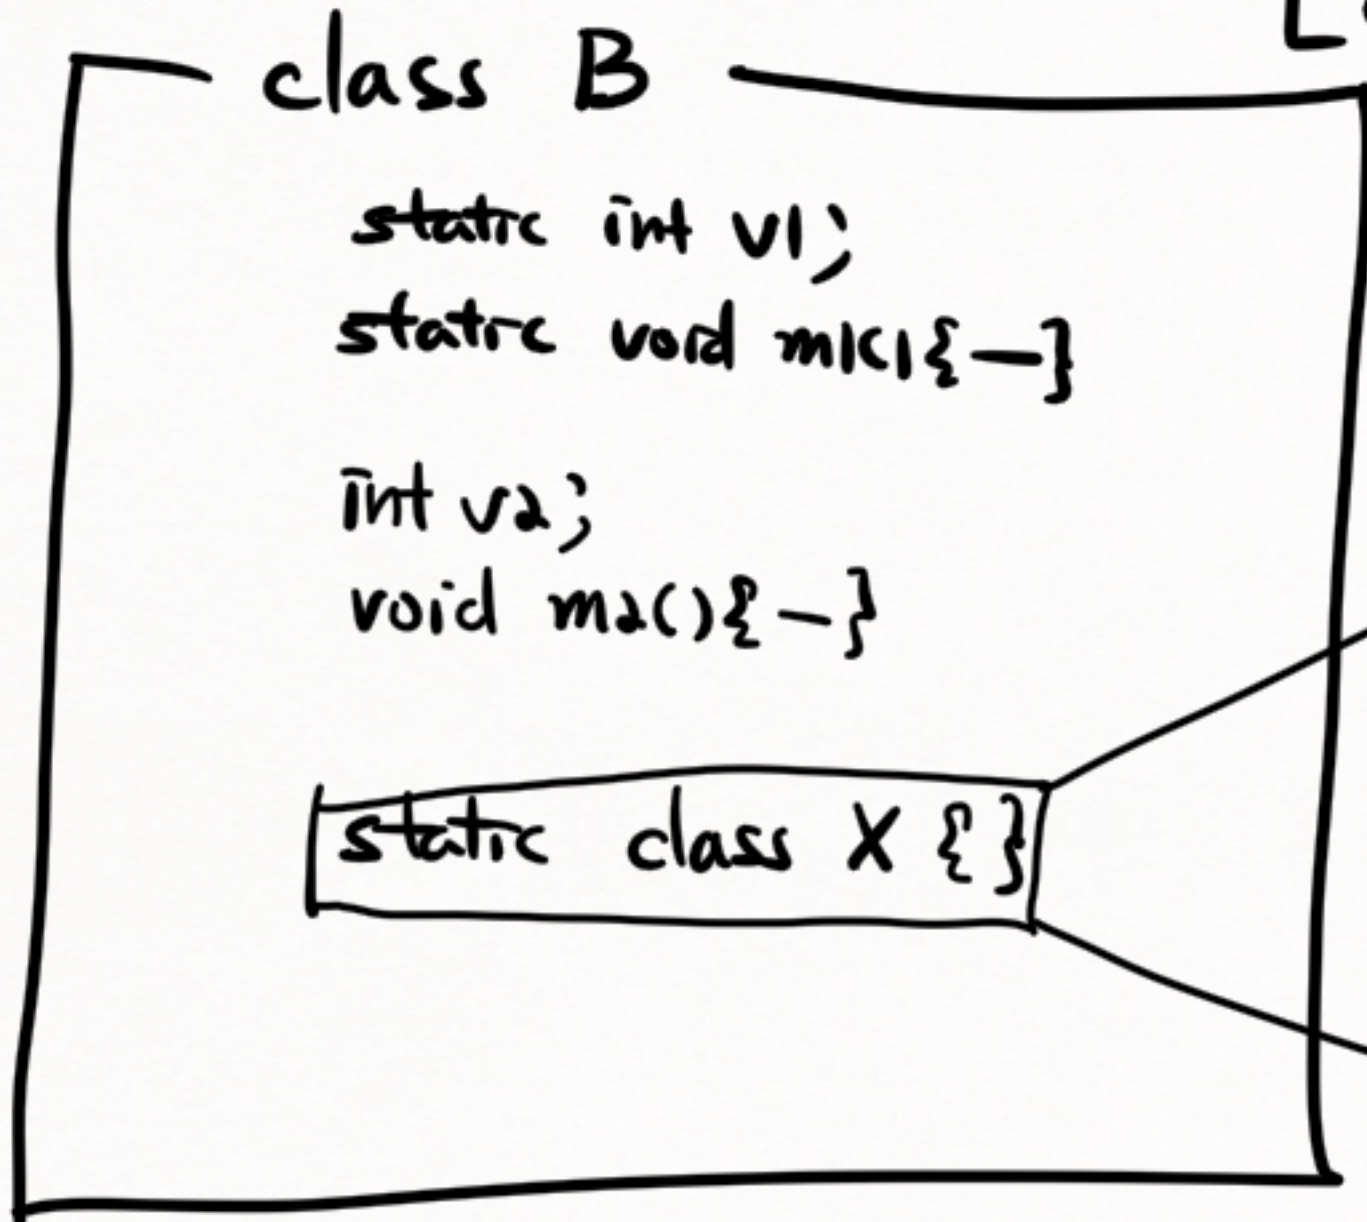 class B
static int v1;
static void m1(){—}
int v2;
void m2(){—}
static class X { }